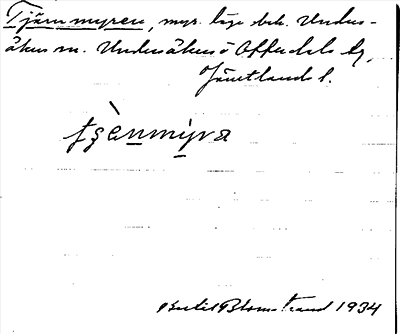 Tjärnmyren, myr. läge bek. Unders-
åkers sn. Undersåkers o Offerdals tg,
Jämtlands l.
tṣænmy̱ra
Bertil Blomstrand 1934